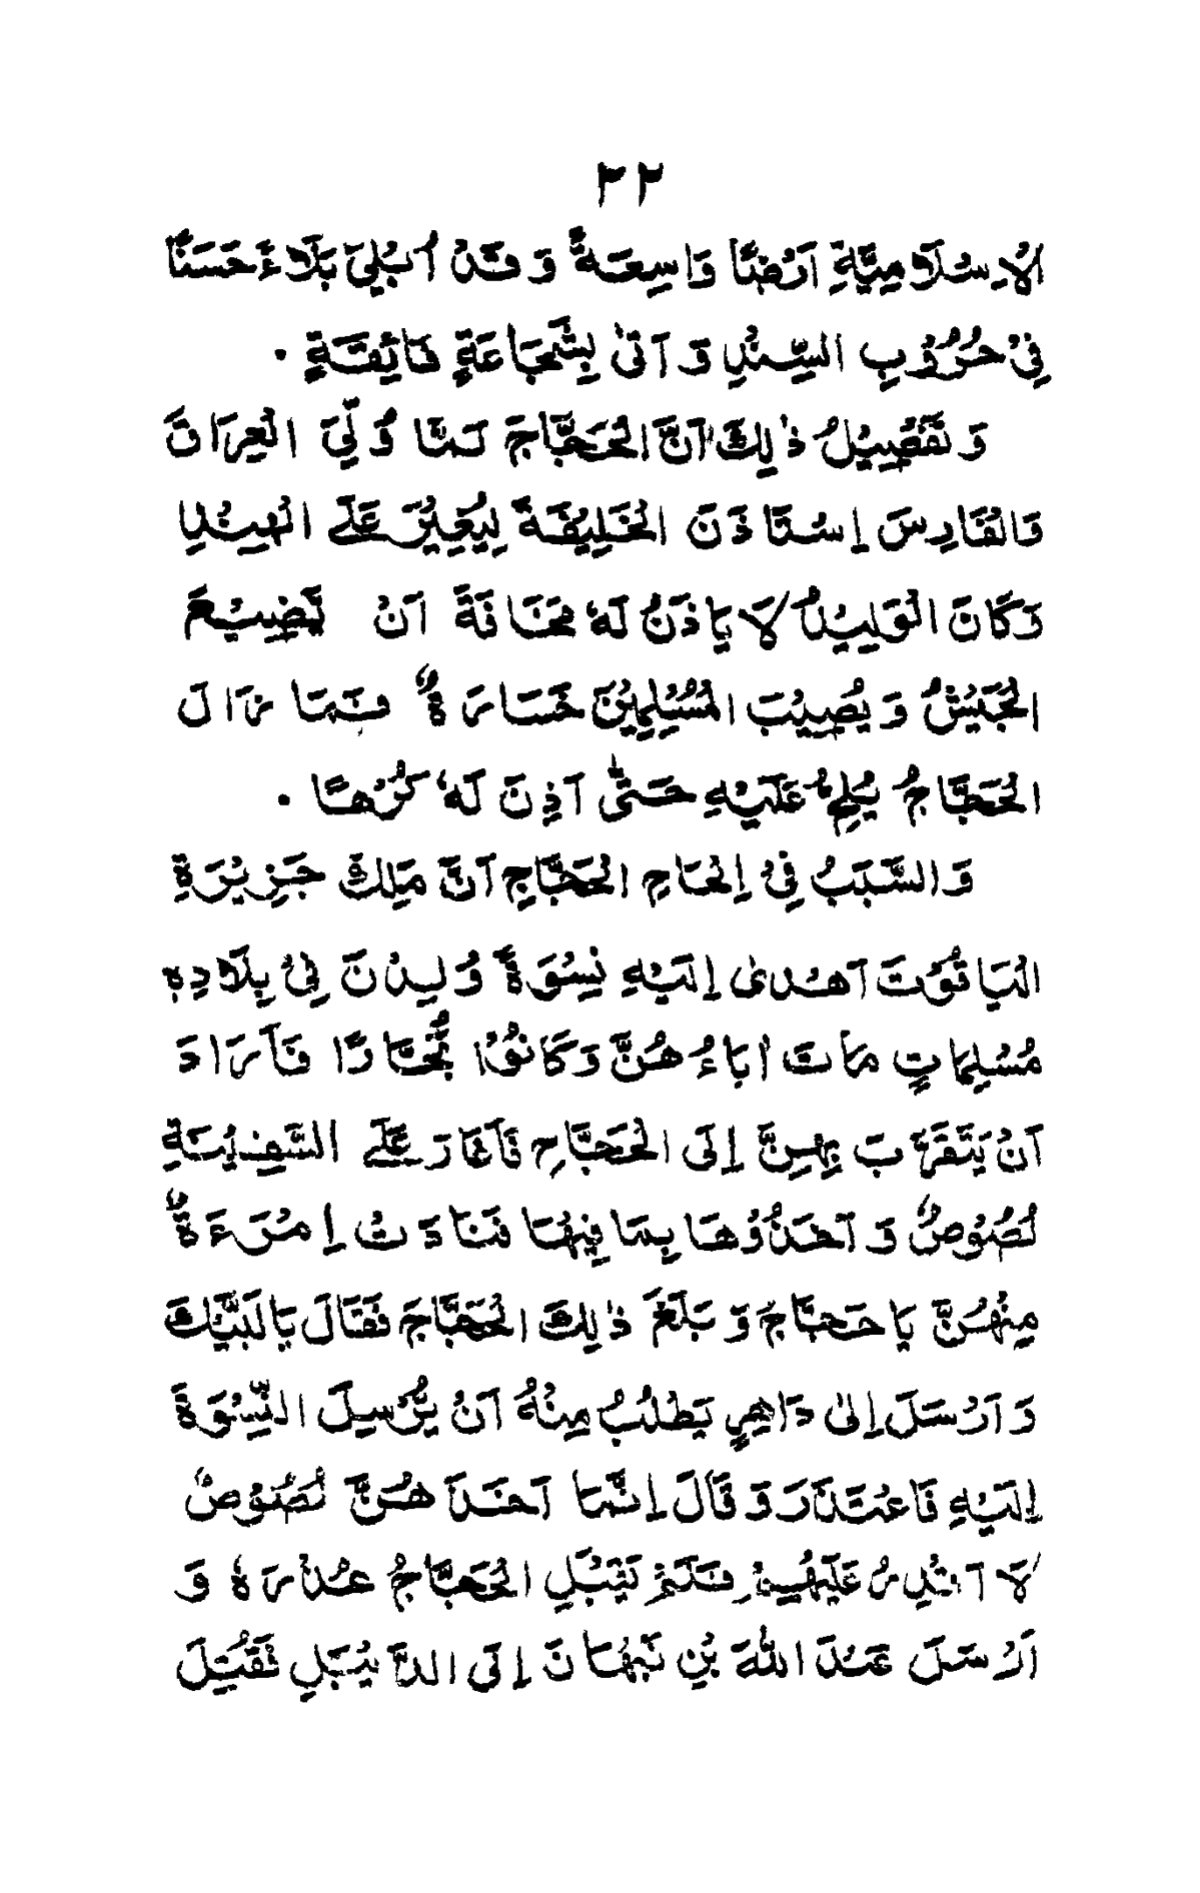 ٢٢
الْإِسْلَامِيَّةِ اَرْضًا وَاسِعَةً وَ قَدْ اُبْلِیَ بَلَاءً حَسَنًا
فِیْ حُرُوْبِ السِّنْدِ وَ اَتٰی بِشَجَاعَةٍ فَائِقَةٍ ۔
وَ تَفْصِيْلُ ذٰلِكَ اَنَّ الْحَجَّاجَ لَمَّا وُلِّیَ الْعِرَاقَ
وَالْفَارِسَ اِسْتَاذَنَ الْخَلِيْفَةَ لِيُغِيْرَ عَلَی الْهِنْدِ
وَكَانَ الْوَلِيْدُ لَا يَاذَنُ لَهٗ مَخَافَةَ اَنْ يَّضِيْعَ
الْجَيْشُ وَ يُصِيْبَ الْمُسْلِمِيْنَ خَسَارَةٌ فَمَا زَالَ
الْحَجَّاجُ يُلِحُّ عَلَيْهِ حَتّٰی اَذِنَ لَهٗ كُرْهًا ۔
وَ السَّبَبُ فِیْ اِلْحَاحِ الْحَجَّاجِ اَنَّ مَلِكَ جَزِيْرَةِ
الْيَاقُوْتَ اَهْدٰی اِلَيْهِ نِسْوَةً وُلِدْنَ فِیْ بِلَادِهٖ
مُسْلِمَاتٍ مَاتَ اٰبَاءُ هُنَّ وَ كَانُوْا تُجَّارًا فَاَرَادَ
اَنْ يَتَقَرَّبَ بِهِنَّ اِلَی الْحَجَّاجِ فَاَغَارَ عَلَی السَّفِيْنَةِ
لُصُوْصٌ وَ اَخَذُوْهَا بِمَا فِيْهَا فَنَادَتْ اِمْرَءَةٌ
مِنْهُنَّ يَا حَجَّاجُ وَ بَلَغَ ذٰلِكَ الْحَجَّاجَ فَقَالَ يَا لَبَّيْكَ
وَ اَرْسَلَ اِلٰی دَاهِرٍ يَطْلُبُ مِنْهُ اَنْ يُّرْسِلَ النِّسْوَةَ
اِلَيْهِ فَاعْتَذَرَ وَ قَالَ اِنَّمَا اَخَذَ هُنَّ لُصُوْصٌ
لَا اَقْدِرُ عَلَيْهِمْ فَلَمْ يَقْبَلِ الْحَجَّاجُ عُذْرَهٗ وَ
اَرْسَلَ عَبْدَ اللّٰهَ بْنِ نَبْهَانَ اِلَی الدَّيْبَلِ فَقُتِلَ